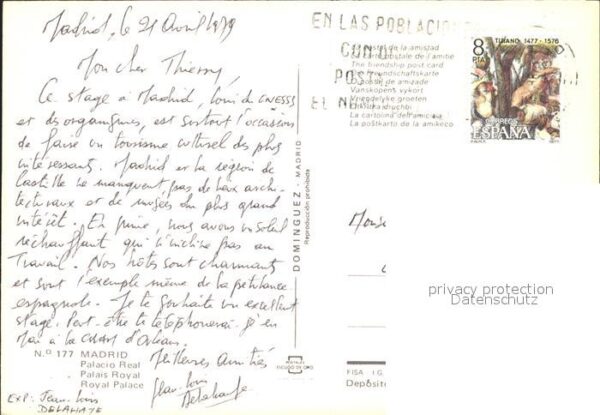 Madrid, le 21 Avril 1979
Mon cher Thierry,
Ce stage à Madrid, loin du CNESSS
et des organigrammes, est surtout l'occasion
de faire un tourisme culturel des plus
intéressants. Madrid et la région de
Castille ne manquent pas de lieux archi-
tecturaux et de musées du plus grand
intérêt. En prime, nous avons un soleil
réchauffant qui n'incline pas au
Travail. Nos hôtes sont charmants
et sont l'exemple même de la pétulance
espagnole. Je te souhaite un excellent
stage. Peut-être te téléphonerai-je en
Mai à la CRAM d'Orléans.
Meilleures Amitiés
Jean-Louis
Delahaye
N.º 177 MADRID
Palacio Real
Palais Royal
Royal Palace
EXP: Jean-Louis
DELAHAYE
DOMINGUEZ - MADRID
Reproducción prohibida
POSTALES
ESCUDO DE ORO
EN LAS POBLACION
CON
POST
EL N
postal de la amistad
carte postale de l'amitié
The friendship post card
Freundschaftskarte
postal de amizade
Vänskapens vykort
Vriendelijke groeten
La cartolina dell'amicizia
La poŝtkarto de la amikeco
8
PTA
TIZIANO 1477-1576
CORREOS
ESPAÑA
privacy protection
Datenschutz
FISA I.G.
Depósito